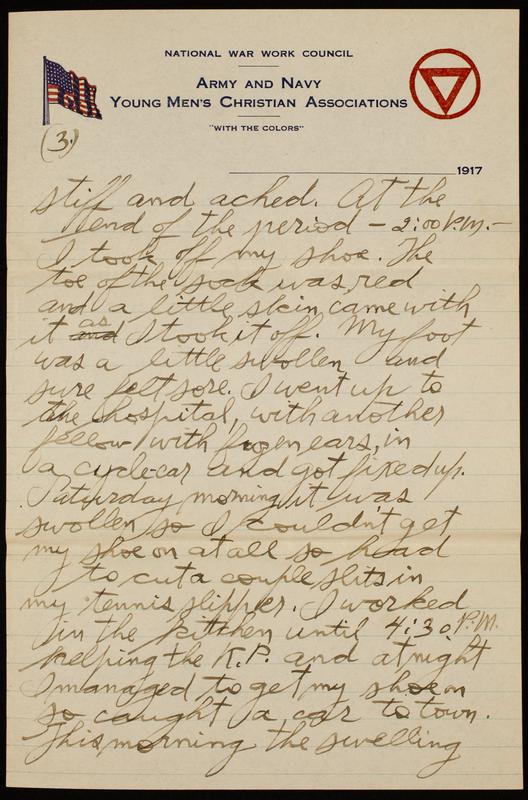 NATIONAL WAR WORK COUNCIL
ARMY AND NAVY
YOUNG MEN'S CHRISTIAN ASSOCIATIONS
"WITH THE COLORS"
(3.)
1917
stiff and ached. At the
end of the period – 2:00 P.M. –
I took off my shoe. The
toe of the sock was red
and a little skin came with
it and as I took it off. My foot
was a little swollen and
sure felt sore. I went up to
the hospital, with another
fellow with frozen ears, in
a cycle-car and got fixed up.
Saturday morning it was
swollen so I couldn't get
my shoe on at all so had
to cut a couple slits in
my tennis slipper. I worked
in the kitchen until 4:30 P.M.
helping the K.P. and at night
I managed to get my shoe on
so caught a car to town.
This morning the swelling